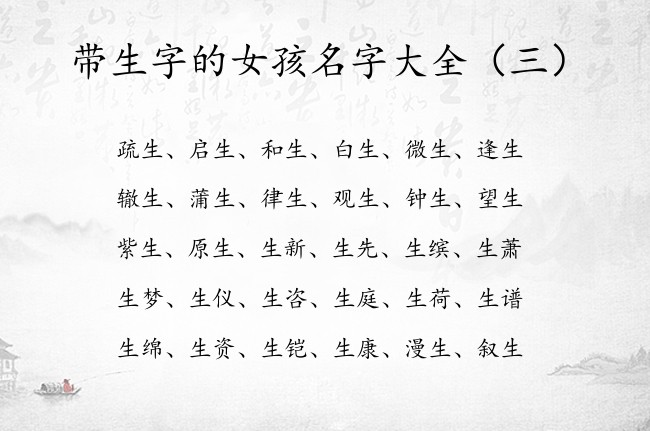 带生字的女孩名字大全（三）
疏生、启生、和生、白生、微生、逢生
辙生、蒲生、律生、观生、钟生、望生
紫生、原生、生新、生先、生缤、生萧
生梦、生仪、生咨、生庭、生荷、生谱
生绵、生资、生铠、生康、漫生、叙生